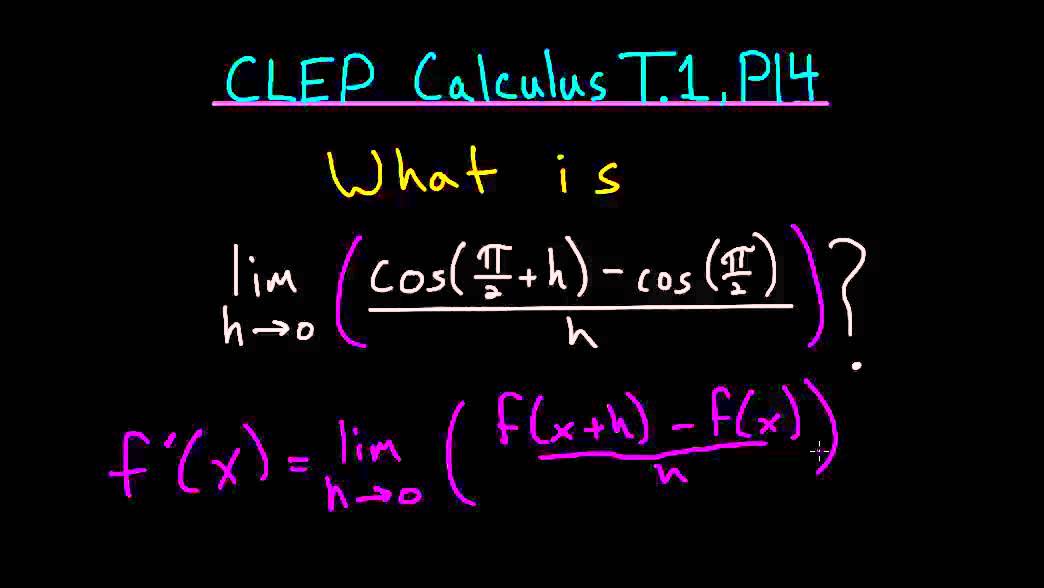 CLEP Calculus T.1, P14
What is
lim h→0 ( (cos(π/2 + h) − cos(π/2)) / h ) ?
f'(x) = lim h→0 ( (f(x+h) − f(x)) / h )